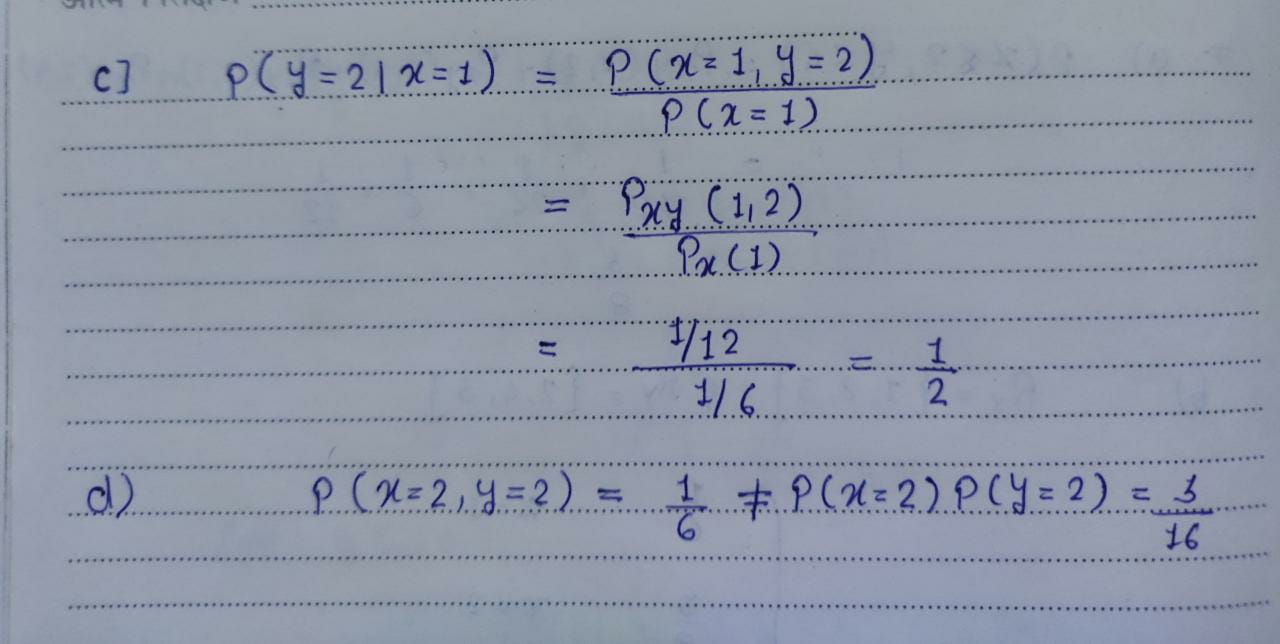 c] P(y=2|x=1) = P(x=1, y=2) / P(x=1)
= Pxy (1,2) / Px(1)
= 1/12 / 1/6 = 1/2
d) P(x=2, y=2) = 1/6 ≠ P(x=2) P(y=2) = 3/16